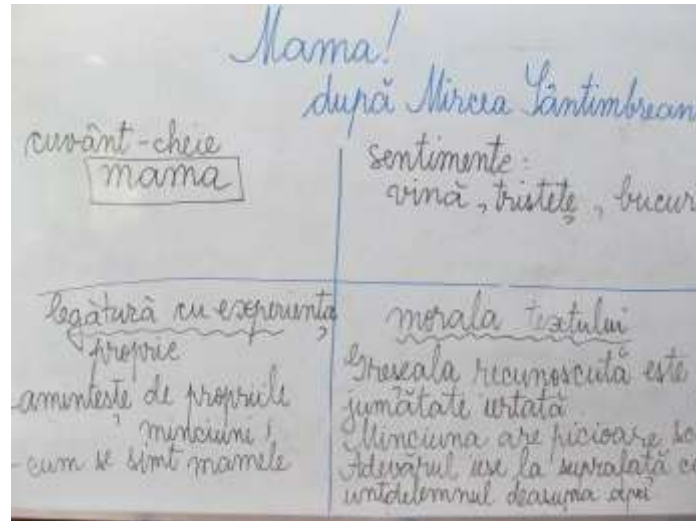 Mama!
după Mircea Sântimbrean
cuvânt-cheie
mama
sentimente:
vină, tristețe, bucur
legătură cu experiența
proprie
-amintește de propriile
minciuni!
-cum se simt mamele
morala textului
Greșeala recunoscută este
jumătate iertată
Minciuna are picioare sc
Adevărul iese la suprafață ca
untdelemnul deasupra apei